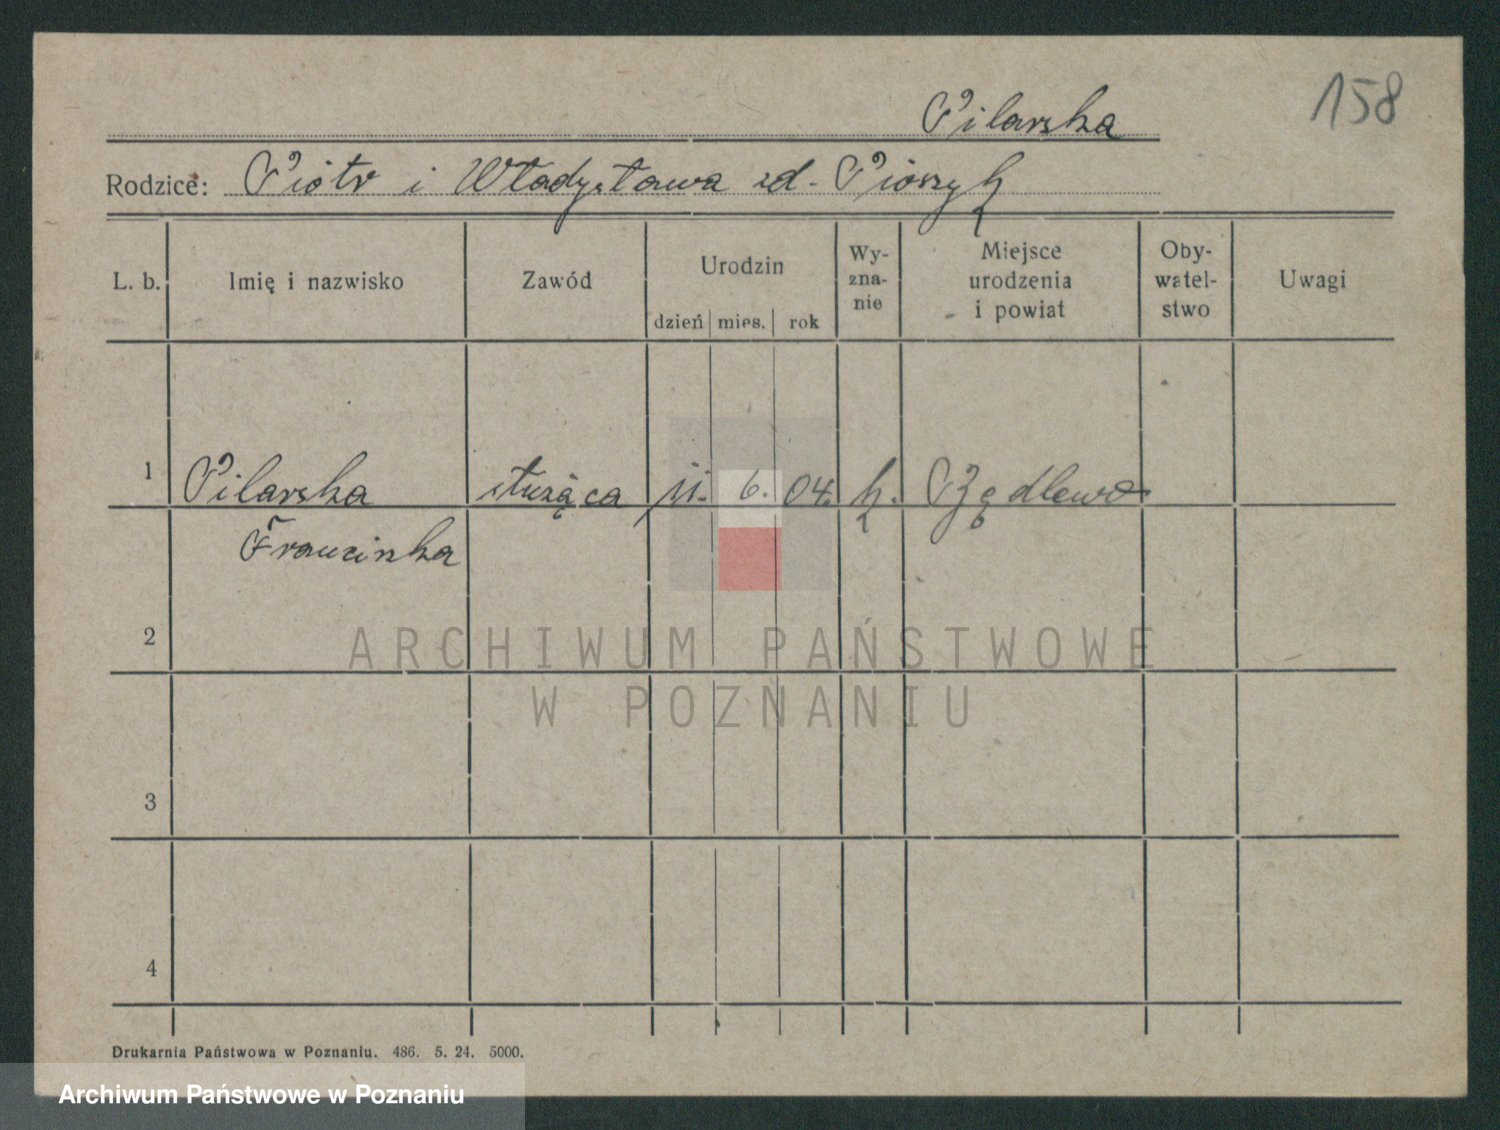 158
Pilarska
Rodzice: Piotr i Władysława zd. Pioszyk
L. b. Imię i nazwisko Zawód Urodzin dzień mies. rok Wy-zna-nie Miejsce urodzenia i powiat Oby-watel-stwo Uwagi
1 Pilarska służąca 11. 6. 04. k.
Franciszka
2
ARCHIWUM PAŃSTWOWE
W POZNANIU
3
4
Drukarnia Państwowa w Poznaniu. 486. 5. 24. 5000.
Archiwum Państwowe w Poznaniu